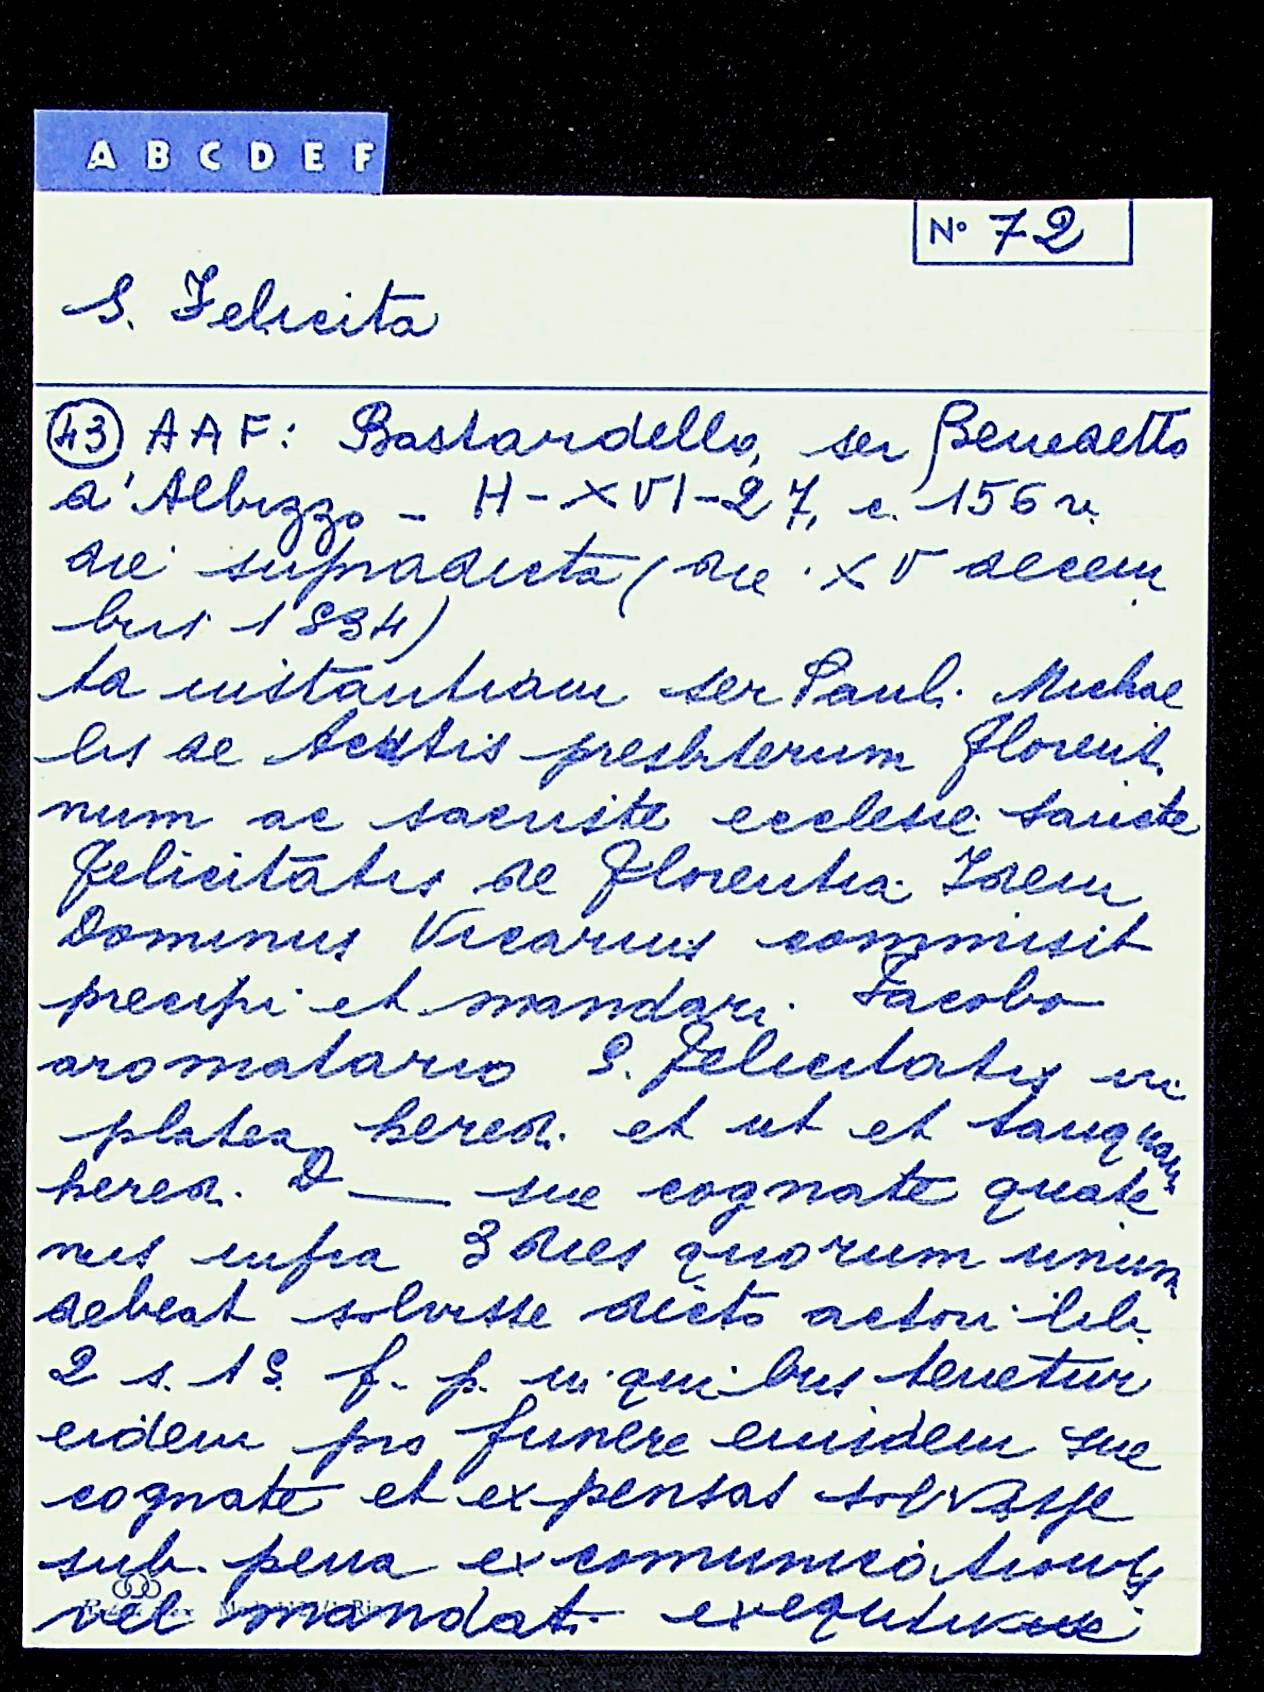 A B C D E F
N° 72
S. Felicita
43 AAF: Bastardello, ser Benedetto
d'Albizzo - H-XVI-27, c. 156 v.
die supradicta (die XV decem
bris 1334)
Ad instantiam ser Pauli Michae
lis de presbiterum florenti
num ac sacriste ecclesie Sancte
Felicitatis de Florentia Idem
Dominus Vicarius commisit
precipi et mandari Jacobo
aromatario S. Felicitatis in
platea hered. et ut et tanquam
hered. D__ sue cognate quate
nus infra 3 dies quorum unum
debeat solvisse dicto actori lib.
2 s. 19 f. p. in quibus tenetur
eidem pro funere eiusdem sue
cognate et expensas
sub pena excomunicationis
vel mandati